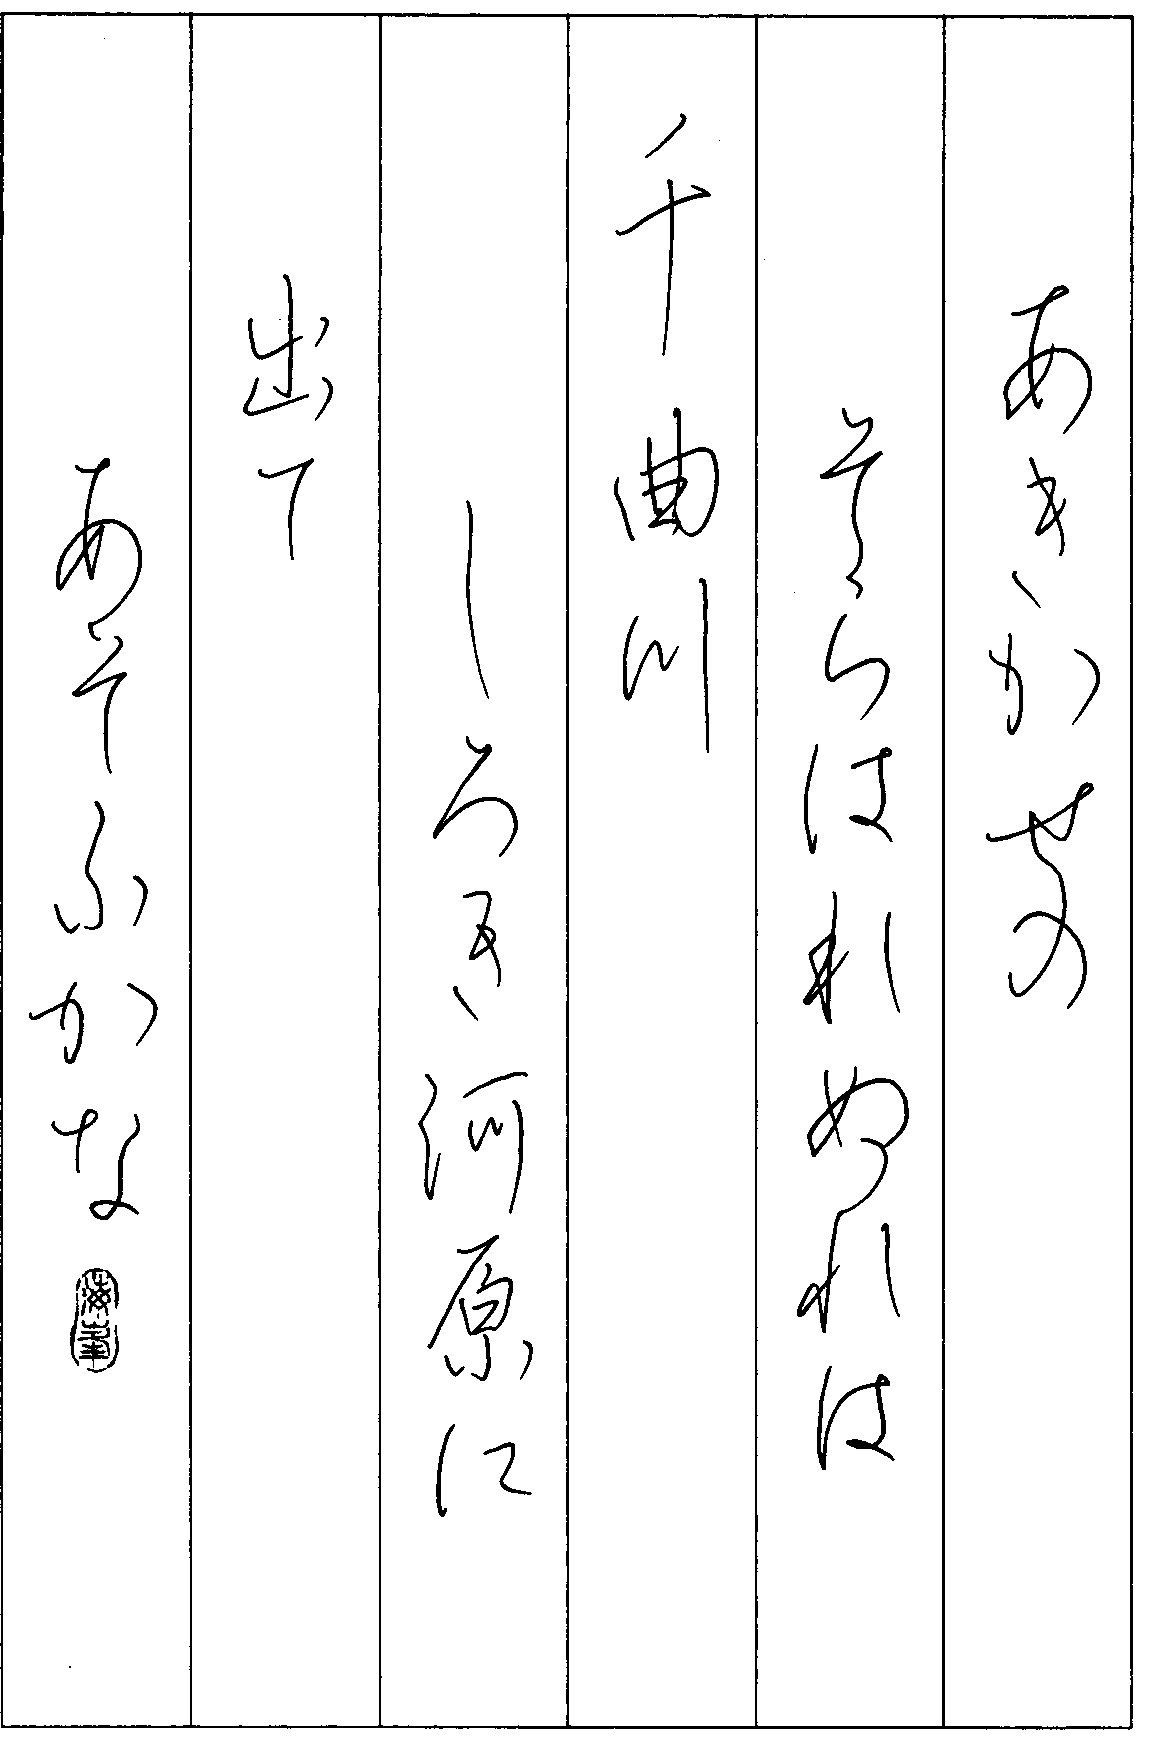 あきかせの
そらはれぬれは
千曲川
しろき河原に
出て
あそふかな